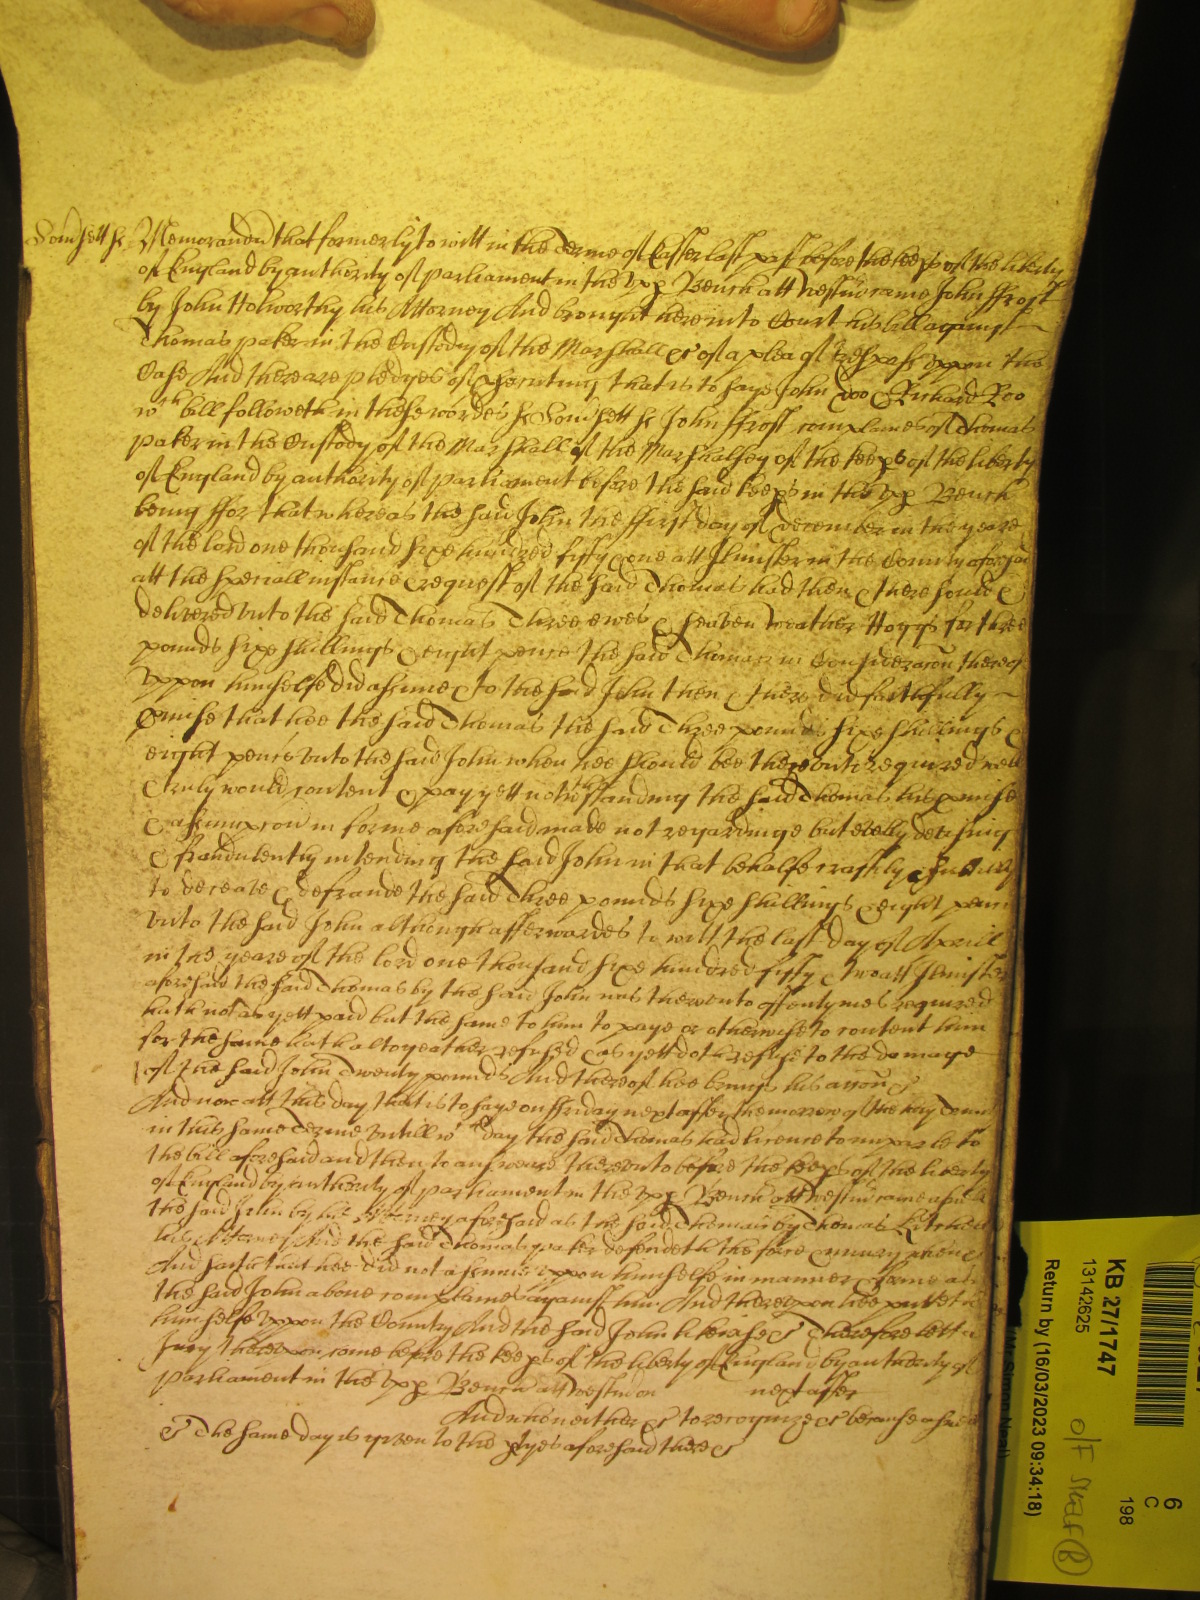 Som̃sett ss Memorandũ that formerly to witt in the Terme of Easter last past before the keeps of the liberty
of England by authority of Parliament in the vpp Bench att Westm̃ came John ffrost
by John Holworthy his Attorney And brought here into Court his bill against
Thomas paker in the Custody of the Marshall &c of a plea of trespass vppon the
Case And there are pledges of prosecuting that is to saye John Doo & Richard Roo
wch bill followeth in these wordes ss Som̃sett ss John ffrost complaines of Thomas
paker in the Custody of the Marshall of the Marshalsey of the keeps of the liberty
of England by authority of Parliament before the said keeps in the vpp Bench
being ffor that whereas the said John the ffirst day of December in the yeare
of the lord one thousand sixe hundred fifty & one att Ilmister in the County aforesaid
att the speciall instance & request of the said Thomas had then & there sould &
delivered vnto the said Thomas Three ewes & seaven weather Hoggs for three
pounds sixe shillings & eight pence the said Thomas in Consideracon thereof
vppon himselfe did assume & to the said John then & there did faithfully
pmise that hee the said Thomas the said Three pounds sixe shillings &
eight pence vnto the said John when hee should bee therevnto required well
& truly would content & pay yett notwthstanding the said Thomas his pmise
& assumpcon in forme aforesaid made not regardinge but devising
& fraudulently intending the said John in that behalfe craftily &
to deceave & defraude the said Three pounds sixe shillings & eight pence
vnto the said John although afterwardes to witt the last day of Aprill
in the yeare of the lord one thousand sixe hundred fifty & two att Ilmister
aforesaid the said Thomas by the said John was therevnto oftentymes required
hath not as yett paid but the same to him to paye or otherwise to content him
for the same hath altogeather refused & as yett doth refuse to the damage
of the said John Twenty pounds And thereof hee brings his accon &c
And now att this day that is to saye on ffriday next after the morrow of the holy
in this same Terme vntill wch day the said Thomas had licence to imparle to
the bill aforesaid and then to answeare therevnto before the keeps of the liberty
of England by authority of Parliament in the vpp Bench att Westm̃ came aswell
the said John by his Attorney aforesaid as the said Thomas by Thomas
his Attorney And the said Thomas paker defendeth the force & iniury when &c
And saith that hee did not assume vppon himselfe in manner & forme as
the said John above complaines against him And therevpon hee putteth
himselfe vppon the Country And the said John likewise &c Therefore lett a
Jury therevpon come before the keeps of the liberty of England by authority of
Parliament in the vpp Bench att Westm̃ on next after
And who neither &c to recognize &c because aswell
&c The same day is given to the ptyes aforesaid there &c
KB 27/1747
13142625
Return by (16/03/2023 09:34:18)
O/F
6
C
198